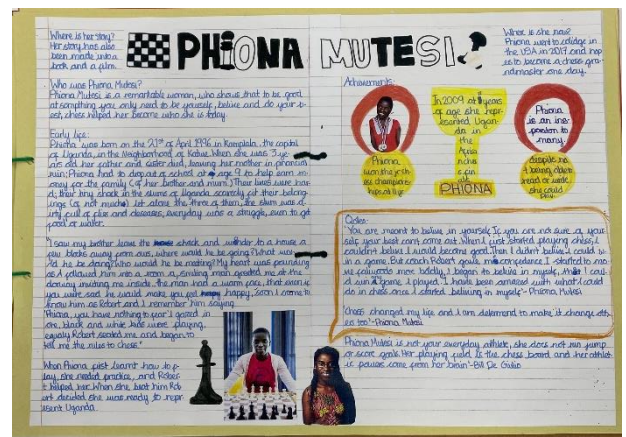 Where is her story?
Her story has also
been made into a
book and a film.
PHIONA MUTESI
Where is she now?
Phiona went to collidge in
the USA in 2017 and hop
es to become a chess gra-
ndmaster one day.
Who was Phiona Mutesi?
Phiona Mutesi is a remarkable woman, who shows that to be good
at something you only need to be yourself, belive and do your be-
st, chess helped her become who she is today.
Early life:
Phiona was born on the of April 1996 in Kampala, the capital
of Uganda, in the Neighborhood of Katwe. When she was 3 ye-
ars old her father and sister died, leaving her mother in financial
ruin; Phiona had to drop out of school at age 9 to help earn m-
oney for the family (of her brother and mum.) Their lives were har-
d, their tiny shack in the slums of Uganda scarcely fit their belong-
ings (of not much) let alone the three of them, the slum was d-
irty, full of flies and diseases, everyday was a struggle, even to get
food or water.
"I saw my brother leave the shack and to a house a
few blocks away from ours, where would he be going? What wou-
ld he be doing? Who would he be meeting? My heart was pounding
as I followed him into a room a, smiling man greeted me at the
doorway inviting me inside. the man had a warm face, that even if
you were sad he would make you feel happy, soon I came to
know him as Robert and I remember him saying
'Phiona, you have nothing to fear' I gazed in
awe, black and white kids were playing,
equaly Robert seated me and began to
tell me the rules to chess."
When Phiona first learnt how to p-
lay, she needed practice, and Rober-
t helped her. When she beat him Rob-
ert decided she was ready to repr-
esent Uganda.
Achievements:
Phiona
won the
ss champions
hips at
In 2009 at years
of age she repr-
esented Ugan-
da in
the
PHIONA
Phiona
is an ins-
piration to
many.
despite no-
t being able to
read or write,
she could
Quotes:
'You are meant to believe in yourself. If you are not sure of your-
self your best can't come out. When I just started playing chess, I
couldn't belive I would become good. Then I didn't belive I could w-
in a game. But coach Robert gave me confidence. I started to mo-
ve forwards more boldly, I began to belive in myself, that I coul-
d win game I played. I have been amazed with what I could
do in chess once I started beliving in myself'- Phiona Mutesi
'Chess changed my life and I am determend to make it change oth-
ers too'- Phiona Mutesi
Phiona Mutesi is not your everyday athlete, she does not run jump
or score goals. Her playing field is the chess board and her athlet-
ic powers come from her brain'- Bill De